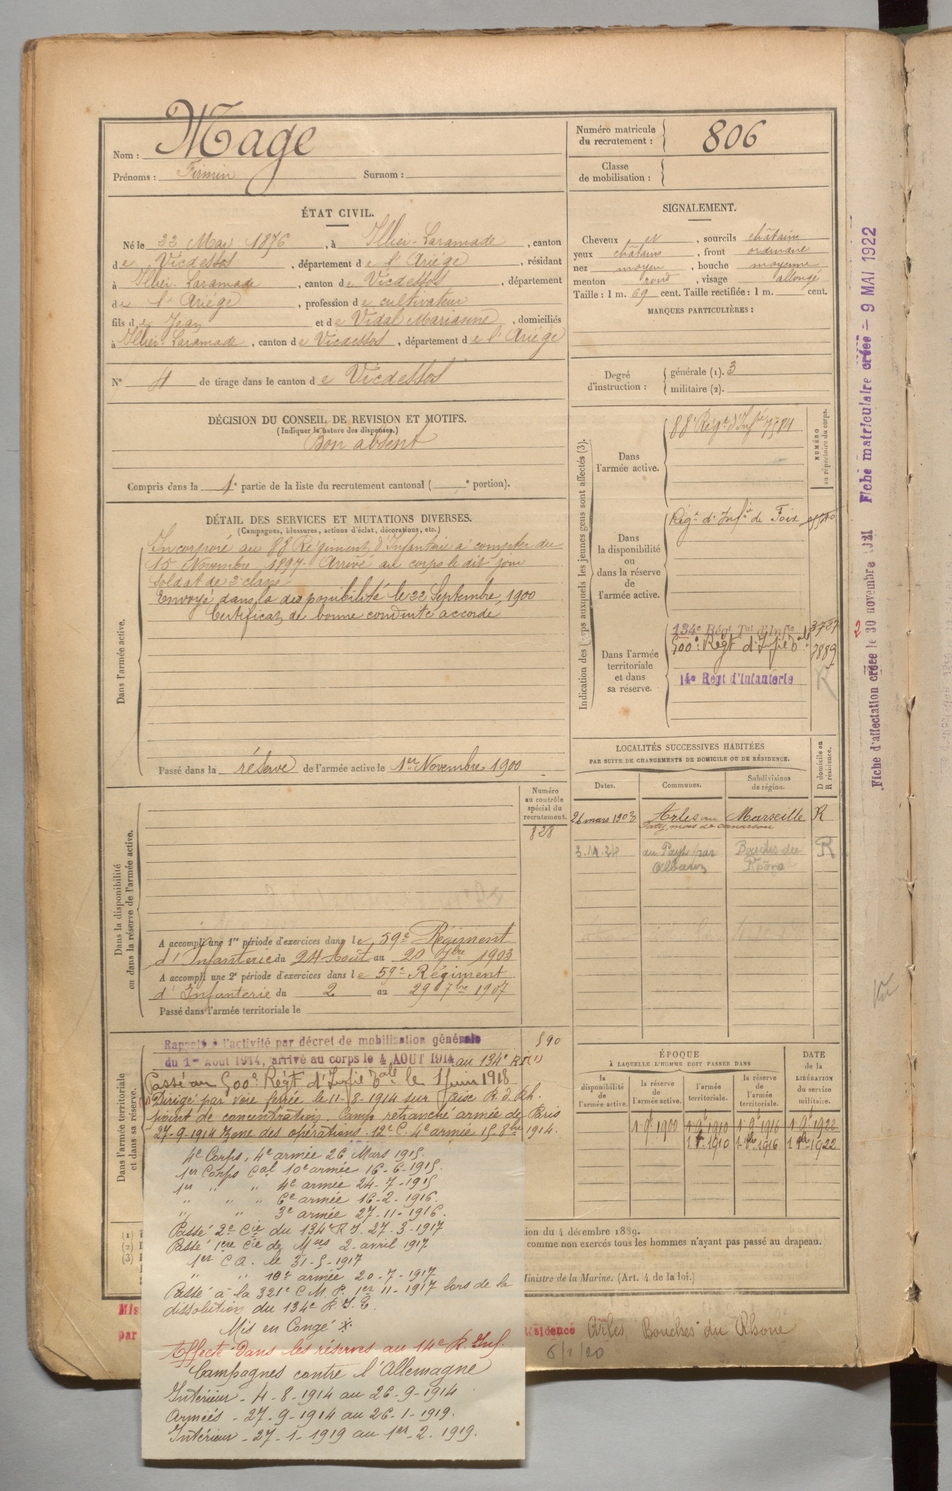 Nom : Mage
Prénoms : Firmin Surnom :
Numéro matricule du recrutement : 806
Classe de mobilisation :
ÉTAT CIVIL.
Né le 22 Mai 1876, à Illier-Laramade, canton
de Vicdessos, département de l'Ariège, résidant
à Illier-Laramade, canton de Vicdessos, département
de l'Ariège, profession de cultivateur
fils de Jean et de Vidal Marianne, domiciliés
à Illier-Laramade, canton de Vicdessos, département de l'Ariège
N° 4 de tirage dans le canton de Vicdessos
SIGNALEMENT.
Cheveux et, sourcils châtains
yeux châtains, front ordinaire
nez moyen, bouche moyenne
menton rond, visage allongé
Taille : 1 m. 69 cent. Taille rectifiée : 1 m. cent.
MARQUES PARTICULIÈRES :
Degré d'instruction : générale (1). 3
militaire (2).
DÉCISION DU CONSEIL DE REVISION ET MOTIFS.
(Indiquer la nature des dispenses.)
Bon absent
Compris dans la 1e partie de la liste du recrutement cantonal ( e portion).
DÉTAIL DES SERVICES ET MUTATIONS DIVERSES.
(Campagnes, blessures, actions d'éclat, décorations, etc.)
Dans l'armée active.
Incorporé au 88 Régiment d'Infanterie à compter du
15 Novembre 1897. Arrivé au corps le dit jour
Soldat de 2e classe
Envoyé dans la disponibilité le 22 Septembre 1900
Certificat de bonne conduite accordé
Passé dans la réserve de l'armée active le 1er Novembre 1900
Indication des corps auxquels les jeunes gens sont affectés (3).
NUMÉRO au répertoire du corps.
Dans l'armée active.
88e Régt d'Infie 7784
Dans la disponibilité ou dans la réserve de l'armée active.
Régt d'Infie de Foix
Dans l'armée territoriale et dans sa réserve.
134e Régt Tal d'Infie 3737
500e Régt d'Infie Tale 7889
14e Régt d'Infanterie R
LOCALITÉS SUCCESSIVES HABITÉES
PAR SUITE DE CHANGEMENTS DE DOMICILE OU DE RÉSIDENCE.
Dates. Communes. Subdivisions de région. D domicile ou R résidence.
26 mars 1908 Arles Marseille R
au Pays par Bouches du R
Rhône
Dans la disponibilité ou dans la réserve de l'armée active.
Numéro au contrôle spécial du recrutement.
828
A accompli une 1re période d'exercices dans le 59e Régiment
d'Infanterie du 24 Août au 20 7bre 1903
A accompli une 2e période d'exercices dans le 59e Régiment
d'Infanterie du 2 au 29 7bre 1907
Passé dans l'armée territoriale le
Dans l'armée territoriale et dans sa réserve.
590
Rappelé à l'activité par décret de mobilisation générale
du 1er Août 1914, arrivé au corps le 4 AOUT 1914 au 134e
Passé au 500e Régt d'Infie Tale le 1 Juin 1918
Dirigé par voie ferrée le 11-8-1914 sur
point de concentration Camp retranché armée de
27-9-1914 Zone des opérations. 12e C. 4e armée 15-8bre 1914.
4e Corps, 4e armée 26 Mars 1915.
1er Corps Cal 10e armée 16-6-1915.
1er " " 4e armée 24-7-1915
" " " 6e armée 16-2-1916.
" " " 3e armée 27-11-1916.
Passé 2e Cie du 134e R.I. 27-3-1917
Passé 1ere Cie de Mses 2 avril 1917
1er C.A. le 31-5-1917
" " 10e armée 20-7-1917
Passé à la 321e C.M.P. 1er 11-1917 lors de la
dissolution du 134e R.I.T.
Mis en Congé
Affecté dans les réserves au 14e R. Inf
Campagnes contre l'Allemagne
Intérieur - 4-8-1914 au 26-9-1914
Armées - 27-9-1914 au 26-1-1919.
Intérieur - 27-1-1919 au 1er-2-1919.
ÉPOQUE
À LAQUELLE L'HOMME DOIT PASSER DANS
la disponibilité de l'armée active. la réserve de l'armée active. l'armée territoriale. la réserve de l'armée territoriale.
DATE de la LIBÉRATION du service militaire.
1.9.1900 1.9.1910 1.9.1916 1.9.1922
1910 1916 1922
ion du 4 décembre 1889.
comme non exercés tous les hommes n'ayant pas passé au drapeau.
Ministre de la Marine. (Art. 4 de la loi.)
Mis
par
Résidence Arles Bouches du Rhône
6/1/20
Fiche d'affectation créée le 30 novembre Fiche matriculaire créée - 9 MAI 1922